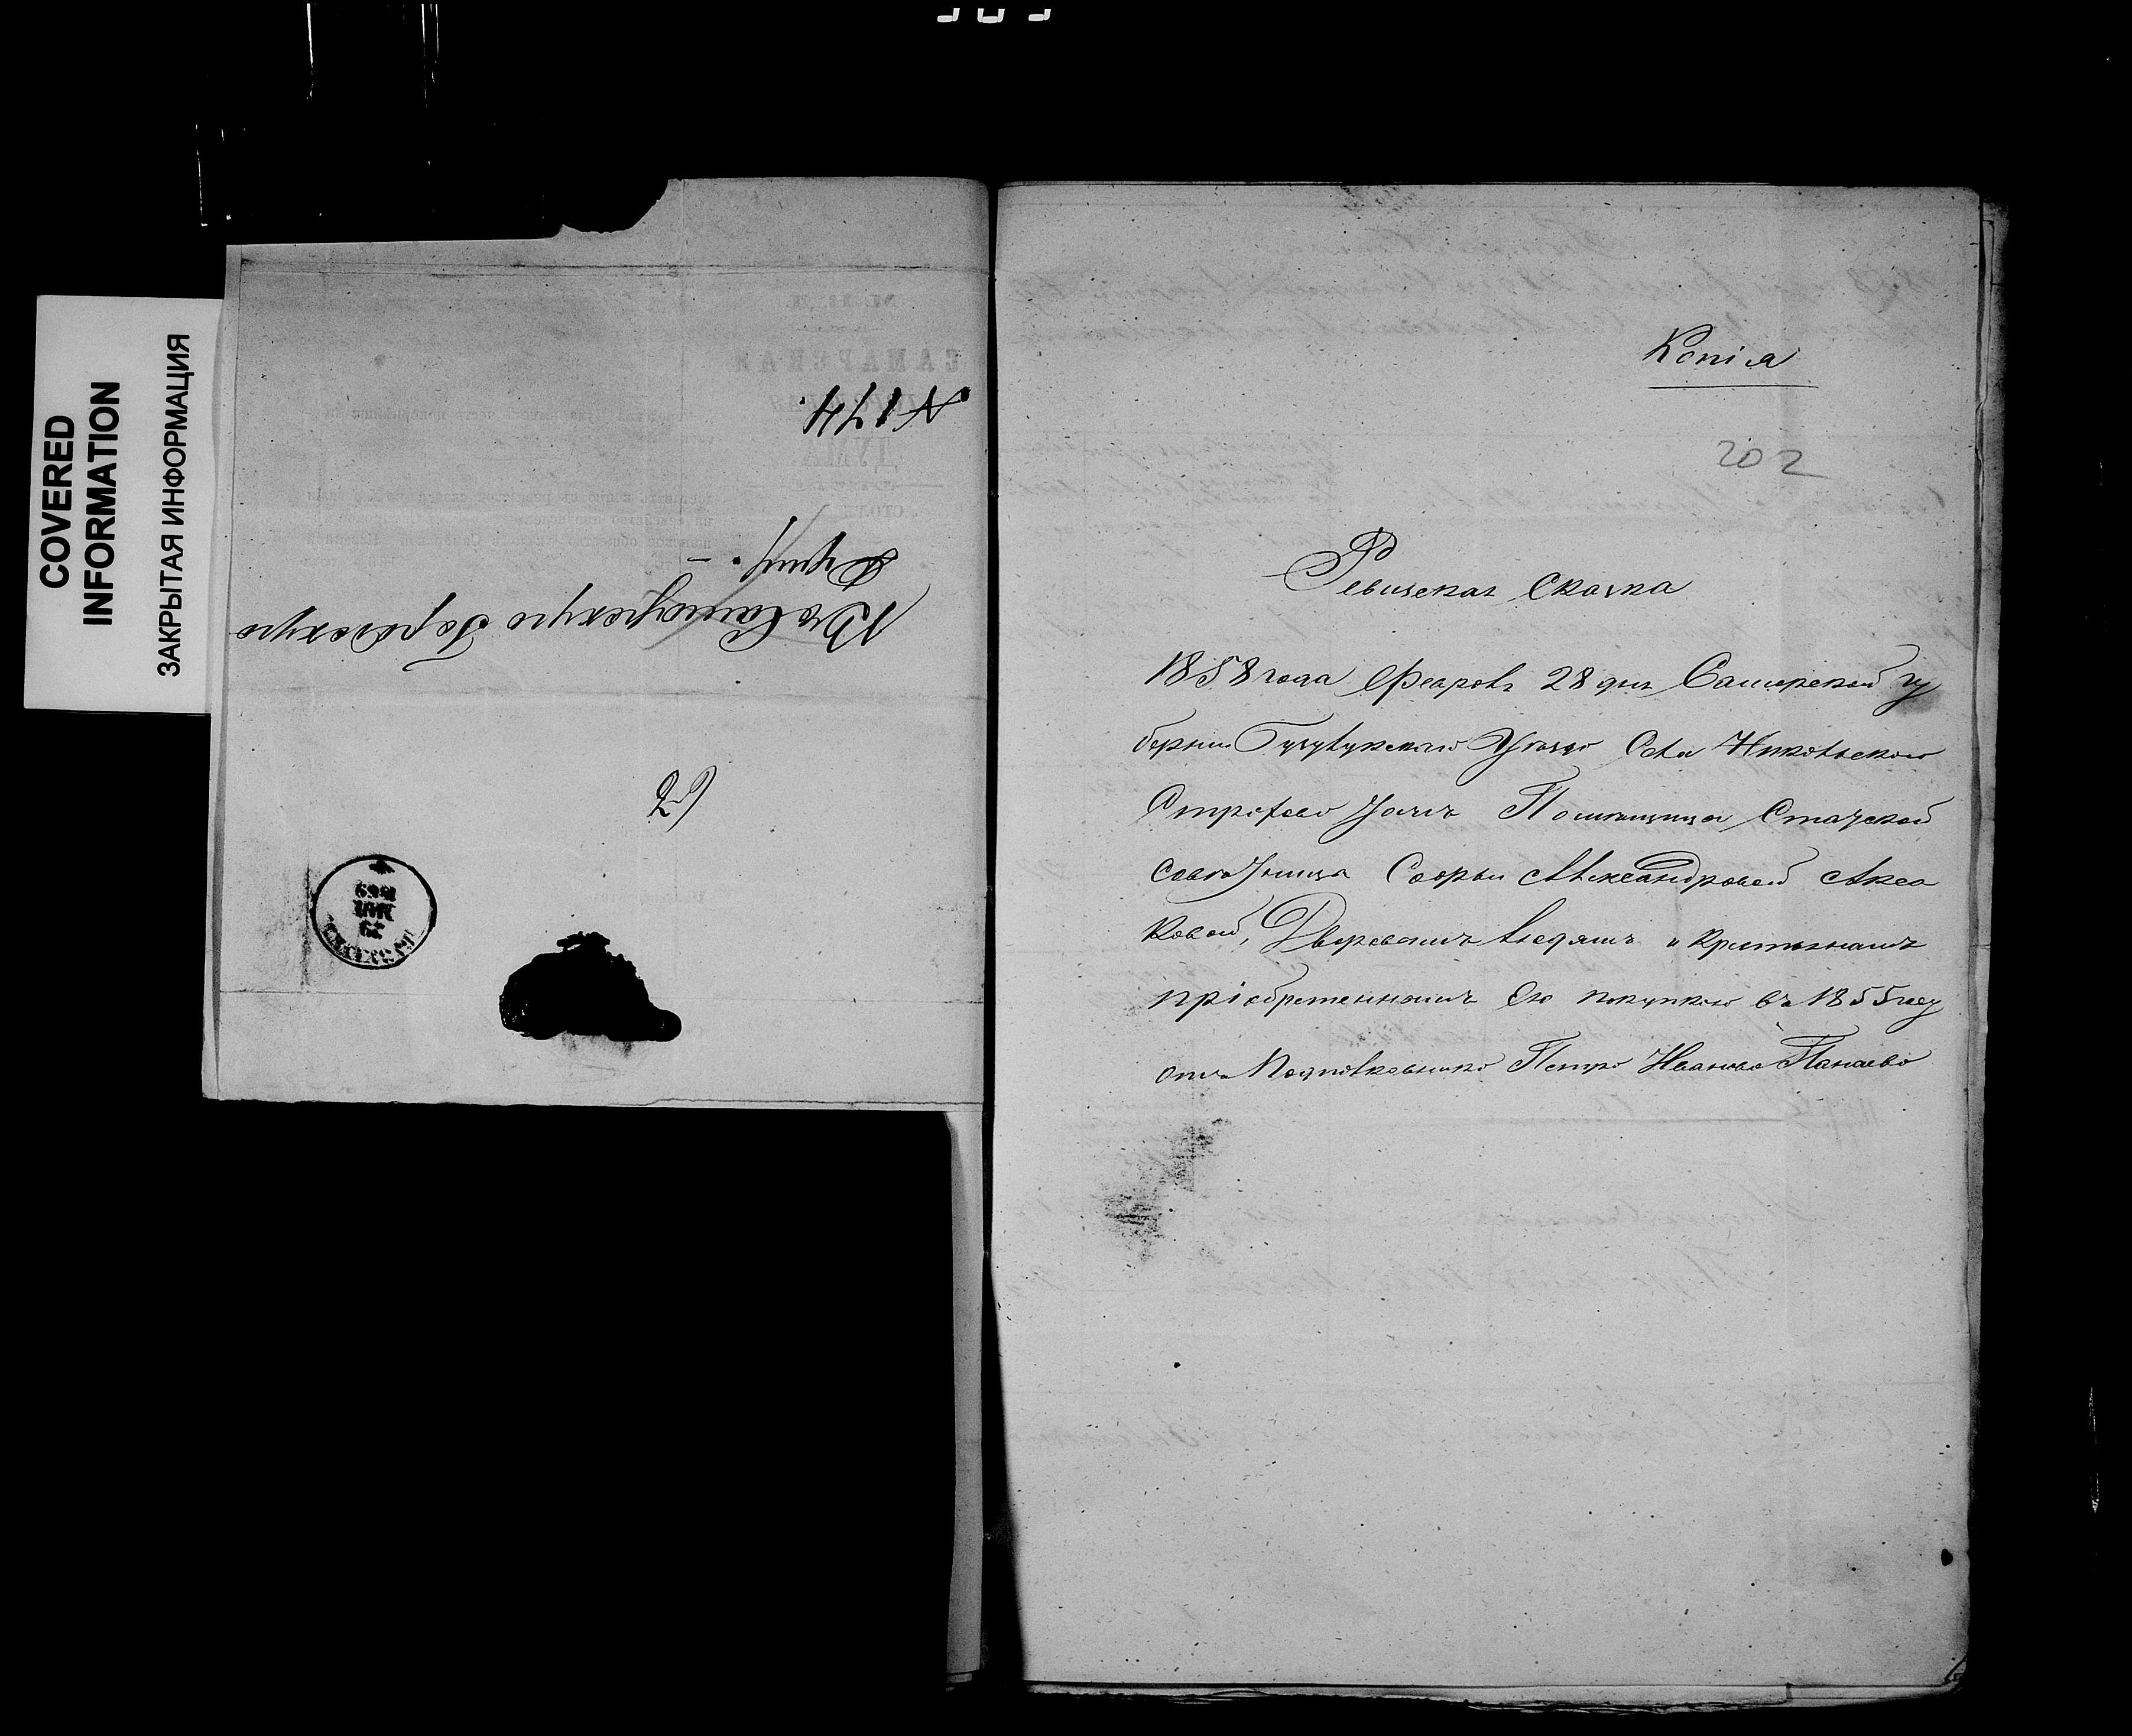 COVERED
INFORMATION
ЗАКРЫТАЯ ИНФОРМАЦИЯ
№ 174.
Въ Самарскую Городскую
Думу.
Копія
202
Ревизская Сказка
1858 года Февраля 28 дня Самарской гу
берніи Бузулукскаго Уезда Села Никольскаго
Помещицы Статской
Советницы Софьи Александровой Акса
ковой, Дворовымъ людямъ и крестьянамъ
пріобретеннымъ Ею покупкою въ 1855 году
отъ Подполковника Петра Иванова Панаева